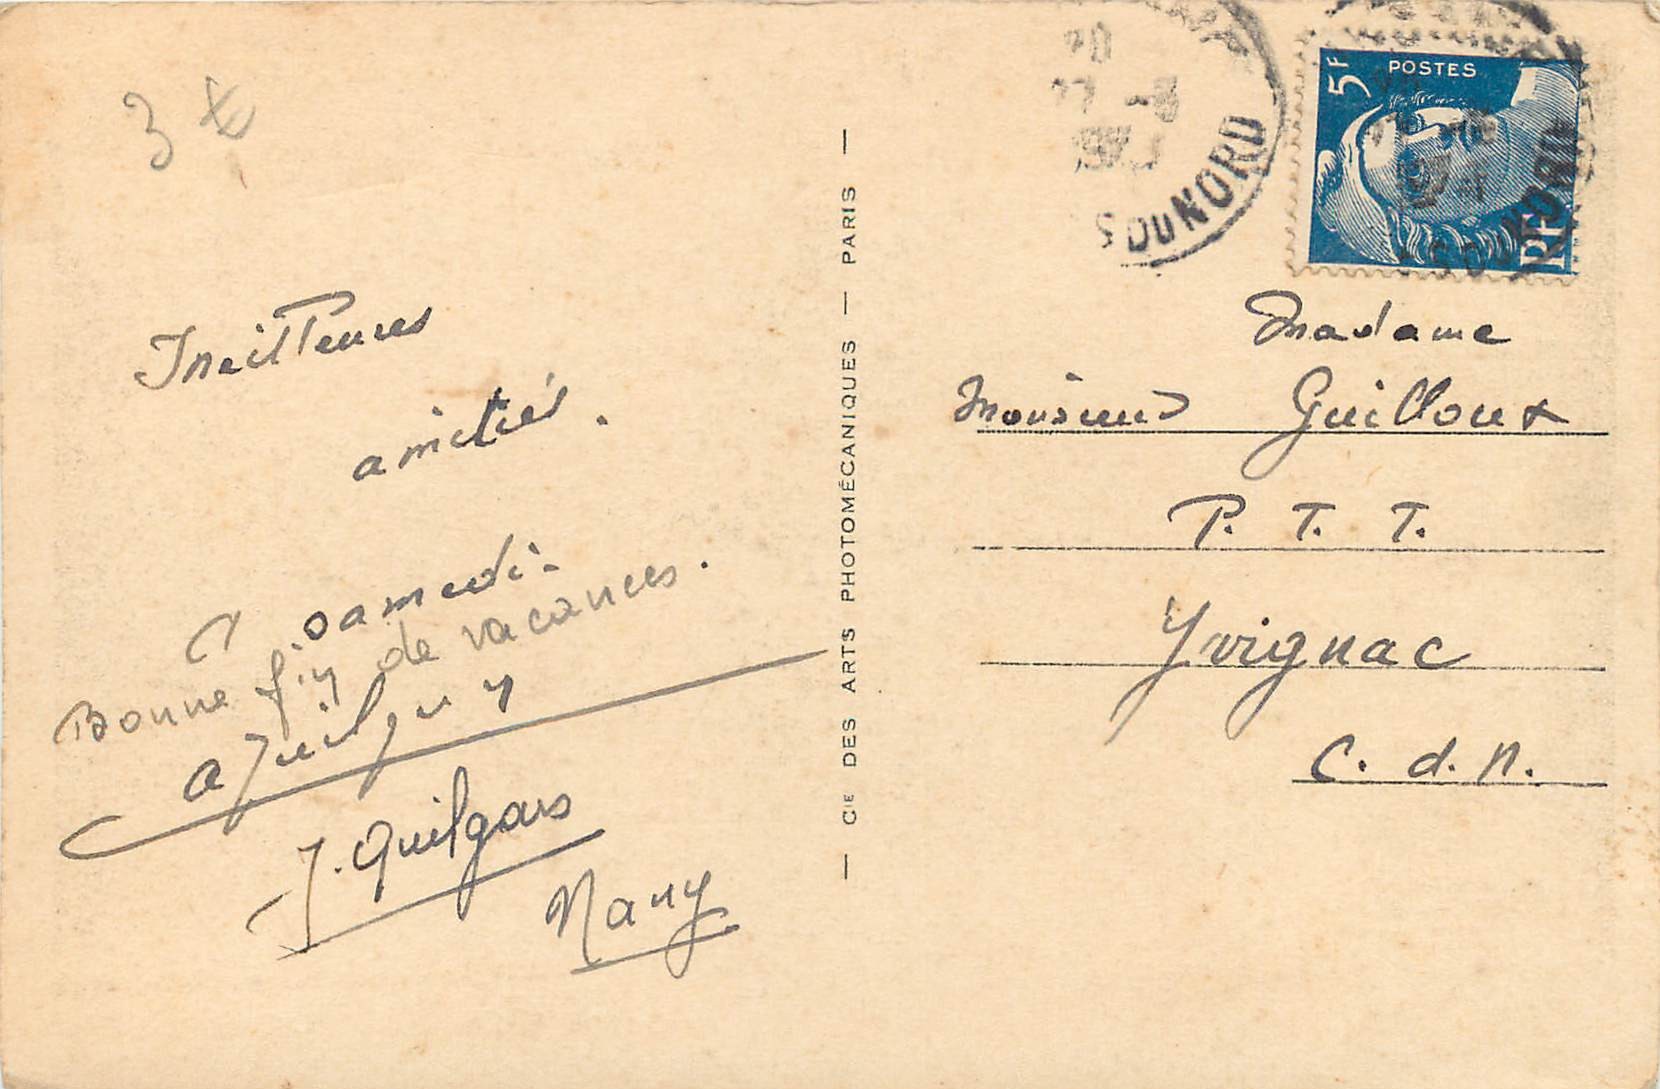 3 €
Meilleures
amitiés.
A samedi.
Bonne fin de vacances.
J. Guilgars
Nany
— CIE DES ARTS PHOTOMÉCANIQUES — PARIS —
20
27 -8
S DU NORD
5F POSTES
RF
Madame
Monsieur Guilloux
P. T. T.
Yvignac
C. d. N.